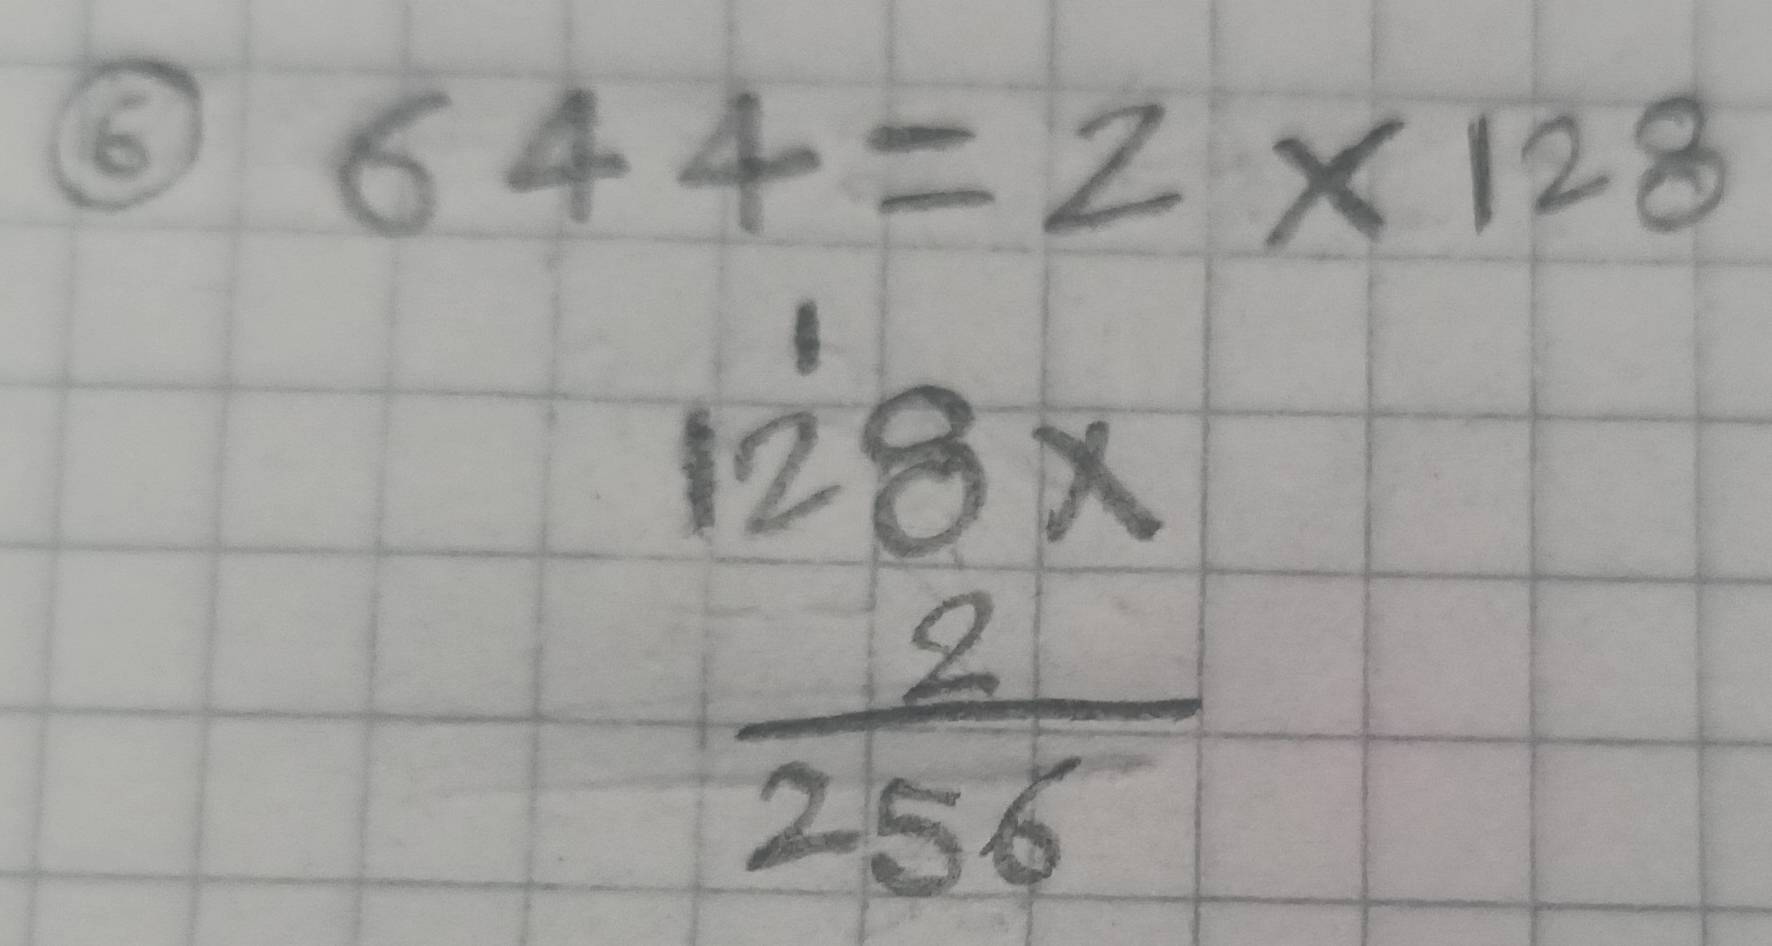 ⑥ 644 = 2 x 128
1
128 x
2
256